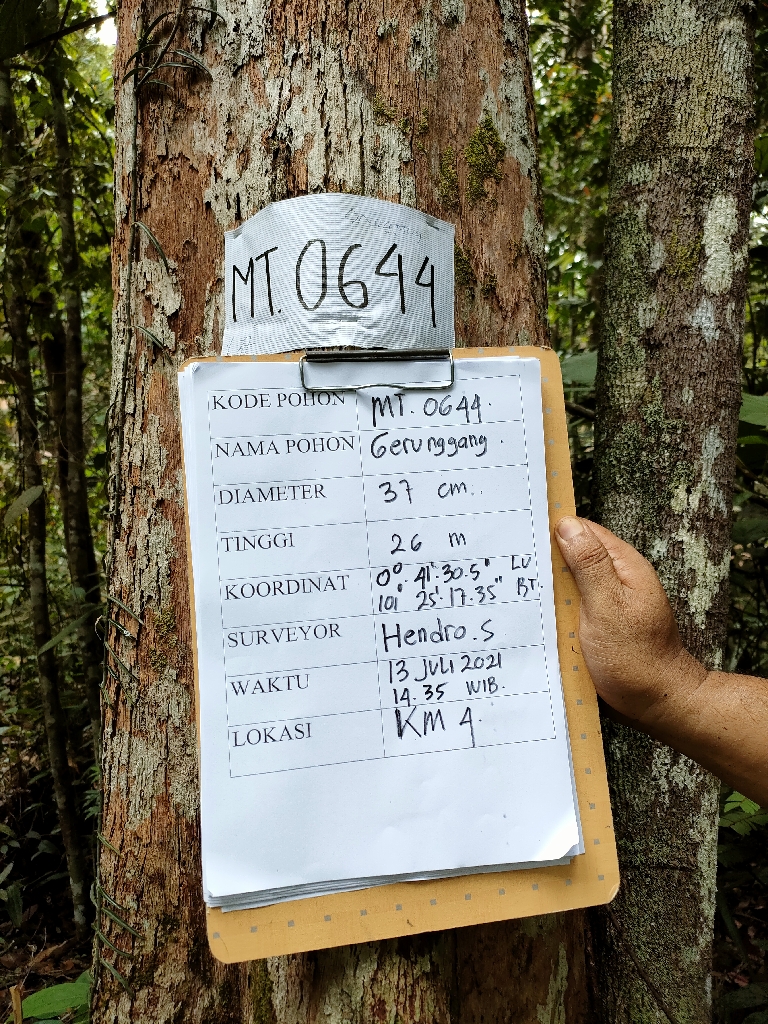 MT. 0644
KODE POHON MT. 0644.
NAMA POHON Gerunggang
DIAMETER 37 cm.
TINGGI 26 m
KOORDINAT 0° 41'.30.5" LU
101° 25'.17.35" BT.
SURVEYOR Hendro.S
WAKTU 13 JULI 2021
14.35 WIB.
LOKASI KM 4.